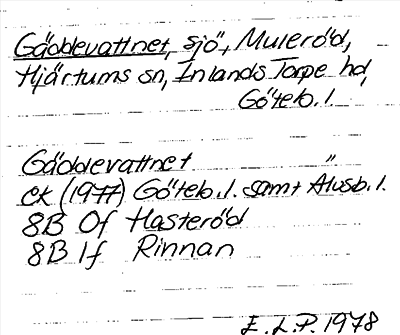 Gäddevattnet, sjö, Muleröd,
Hjärtums sn, Inlands Torpe hd,
Göteb. l.
Gäddevattnet "
ek (1977) Göteb. l. samt Älvsb. l.
8B 0f Hasteröd
8B 1f Rinnan
E.L.P. 1978